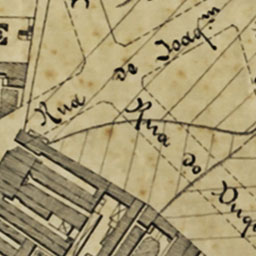 Rua de Joaqm
Rua do Duqu